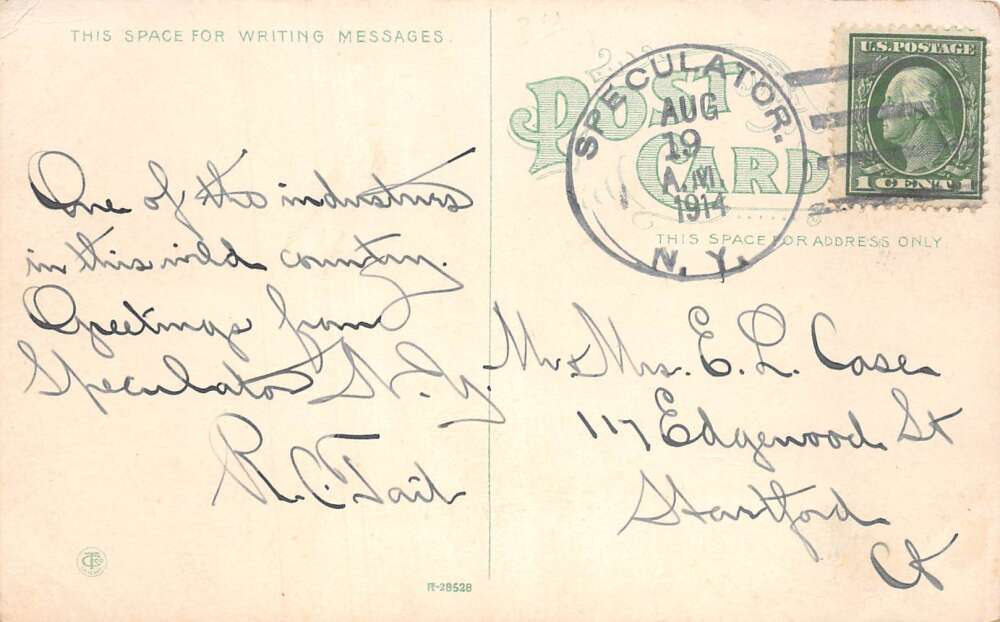 THIS SPACE FOR WRITING MESSAGES.
POST CARD
SPECULATOR.
AUG
19
A.M.
1914
N.Y.
U.S. POSTAGE
1 CENT 1
THIS SPACE FOR ADDRESS ONLY.
One of the industries
in this wild country.
Greetings from
Speculator N.Y.
R. C. Tait
Mr & Mrs. E. L. Case
117 Edgewood St
Hartford
Ct
R-28528